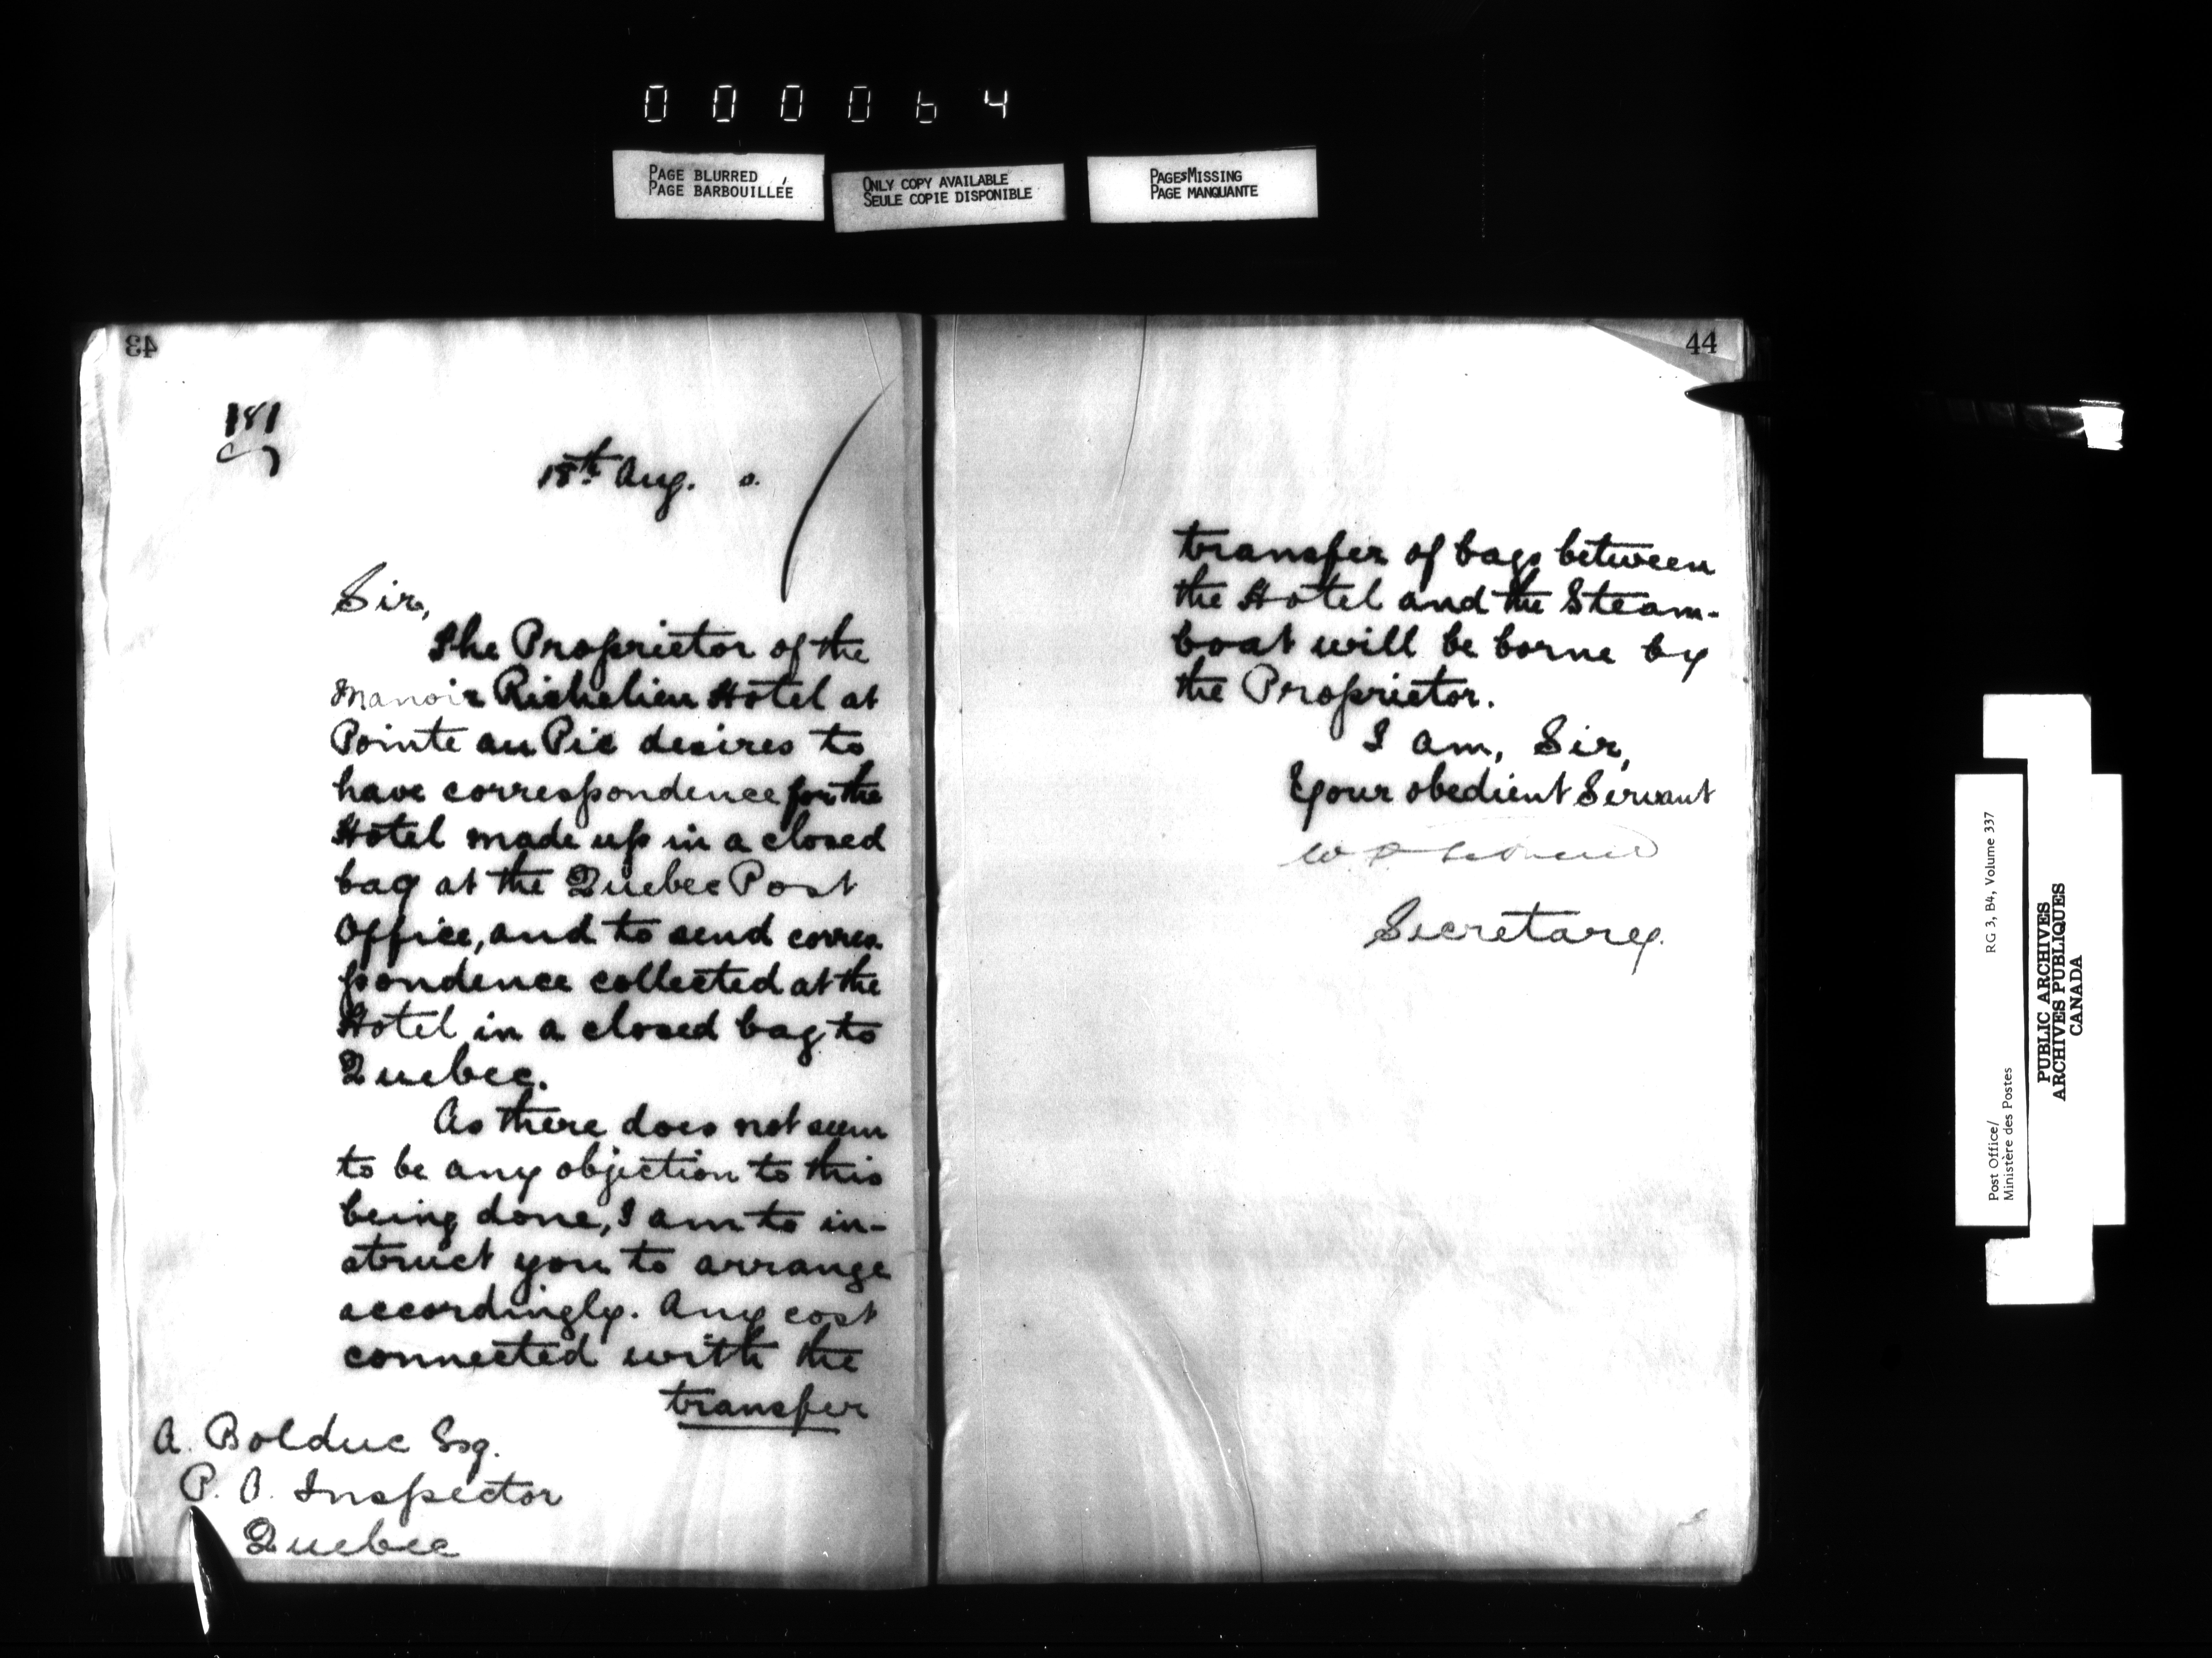 000064
PAGE BLURRED
PAGE BARBOUILLÉE
ONLY COPY AVAILABLE
SEULE COPIE DISPONIBLE
PAGES MISSING
PAGE MANQUANTE
43
181
18th Aug.
Sir,
The Proprietor of the
Manoir Richelieu Hotel at
Pointe au Pic desires to
have correspondence for the
Hotel made up in a closed
bag at the Quebec Post
Office, and to send corres-
pondence collected at the
Hotel in a closed bag to
Quebec.
As there does not seem
to be any objection to this
being done, I am to in-
struct you to arrange
accordingly. Any cost
connected with the
transfer
A. Bolduc Esq.
P. O. Inspector
Quebec
44
transfer of bags between
the Hotel and the Steam-
boat will be borne by
the Proprietor.
I am, Sir,
Your obedient Servant
Secretary.
Post Office/
Ministère des Postes
RG 3, B4, Volume 337
PUBLIC ARCHIVES
ARCHIVES PUBLIQUES
CANADA